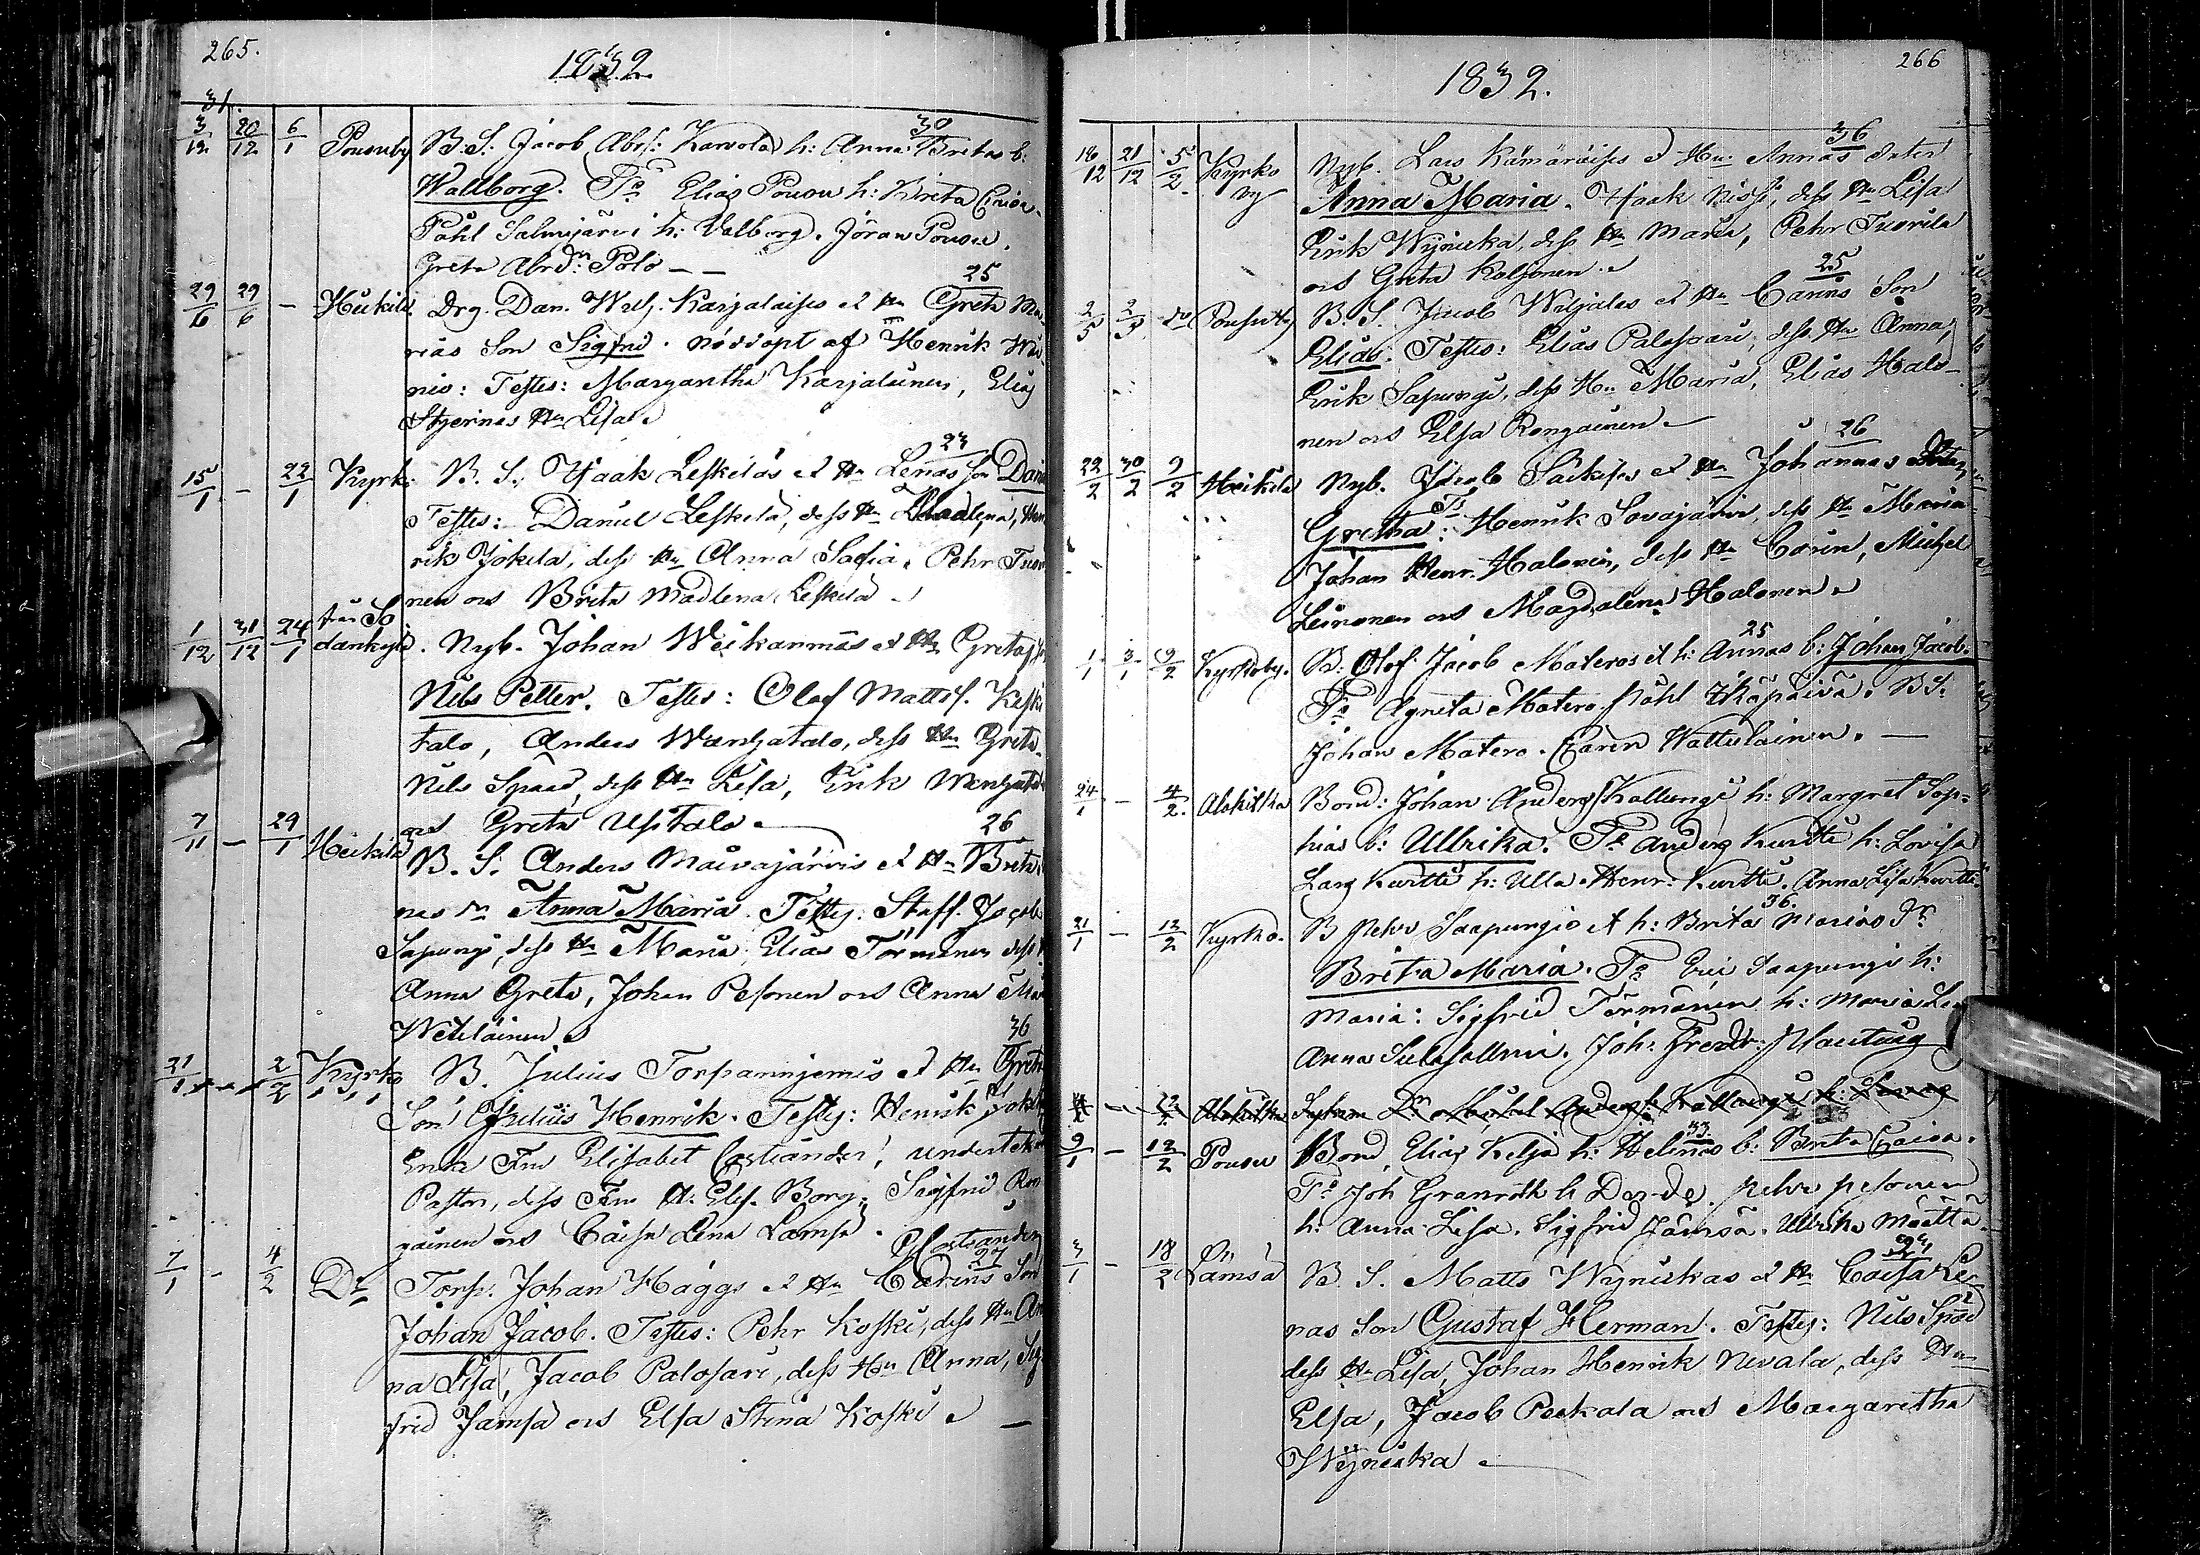 265.
1832.
31.
3/12 20/12 6/1 Pousuby B. S. Jacob Abrs: Karvola h: Anna Britas b: 30
Wallborg. Ts Elias Pousu h: Brita Caisa.
Påhl Salmijärvi h: Valborg. Jöran Pousu.
Greta Abrdr Polo
29/6 29/6 - Heikilä Drg. Dan. Karjalaises et Hu Greta Ma- 25
rias Son Sigfrid. nöddöpt af Henrik
nio: Testes: Margaretha Karjalainen, Elias
Stjernas Hu Lisa.
15/1 - 22/1 Kyrk. B. S. Isaak Leskiläs et Hu Lenas Son 23
Testes: Daniel Leskelä, dess Hu Madlena, Hen
rik Jokela, dess Hu Anna Sofia. Pehr
nen och Brita Madlena Leskelä
1/12 31/12 24/1 från So
dankylä. Nyb. Johan Weikanmäs et Hu Gretas
Nils Petter. Testes: Olof Matts. Keski
talo, Anders Wanhatalo, dess Hu Greta.
Nils Spaad, dess Hu Lisa, Erik Wanhatalo
och Greta Ustalo.
7/11 - 29/1 Heikilä B. S. Anders Maivajärvis et Hu Brita 26
nas dr Anna Maria. Testes: Staff. Jacob
Sapungi, dess Hu Maria, Elias Törmänen dess
Anna Greta, Johan Pesonen och Anna
Wetelainen
21/1 2/2 Kyrko B. Julius Torpannjemis et Hu Greta 36
Son Julius Henrik. Testes: Henrik
Enke Fru Elisabet Costiander, underteknad
Pastor, dess Fru A: Elis. Borg, Sigfrid
gainen och Caisa Lena Lamsa.
Costiander
7/1 - 4/2 Do Torp. Johan Häggs et Hu Carins Son 27
Johan Jacob. Testes: Pehr Koski, dess Hu An
na Lisa, Jacob Palosari, dess Hu Anna, Sig
frid Jamsä och Elsa Stina Koski
266
1832.
18/12 21/12 5/2 Kyrko Nyb. Lars Kämäräises et Hu Annas doter 36
by Anna Maria. Isaak Niss, dess Hu Lisa
Erik Wijnicka, dess Hu Maria, Pehr Tuorila
och Greta Koljonen.
2/5 2/5 do Pousuby B. S. Jacob Wiljalas et Hu Carins Son 25
Elias. Testes: Elias Palosaari, dess Hu Anna,
Erik Sapungi, dess Hu Maria, Elias Halo-
nen och Elsa Rongainen
22/2 30/2 9/2 Heikilä Nyb. Jacob Säkises et Hu Johannas doter 26
Gretha: Ts Henrik Sovajärvi, dess Hu Maria
Johan Henr. Halonen, dess Hu Carin, Michel
Leinonen och Magdalena Halonen.
1/1 3/1 9/2 Kyrkoby. B. Olof Jacob Materos et h: Annas b: Johan Jacob. 25
Ts Agneta Matero. Påhl Ikäpäivä. B. S.
Johan Matero. Caren Wattulainen.
24/1 - 4/2. Alakitka Bond: Johan Anders Kallungi h: Margret Sop-
hias b: Ullrika. Ts Anders Kurtti h: Lovisa
Lars Kurtti h: Ulla. Henr. Kurtti. Anna Lisa Kurtti
21/1 - 12/2 Kyrko. B Pehr Saapungis et h: Brita Marias Dr 36.
Brita Maria. Ts Eric Saapungi h:
Maria: Sigfrid Törmänen h: Maria
Anna Suksijellmi. Joh: Fredr:
9/1 - 12/2 Pousu Bond. Elias Kelja h: Helenas b: Brita Caisa. 33
Ts Joh Granroth h Do-do. Pehr Pesonen
h: Anna Lisa. Sigfrid Jämsä. Ullrika Määttä
3/1 - 18/2 Lämsä B. S. Matts Wijnickas et Hu Caisa Le
nas Son Gustaf Herman. Testes: Nils Spad
dess Hu Lisa, Johan Henrik Nevala, dess Hu
Elsa, Jacob Peckala och Margaretha
Wijnicka